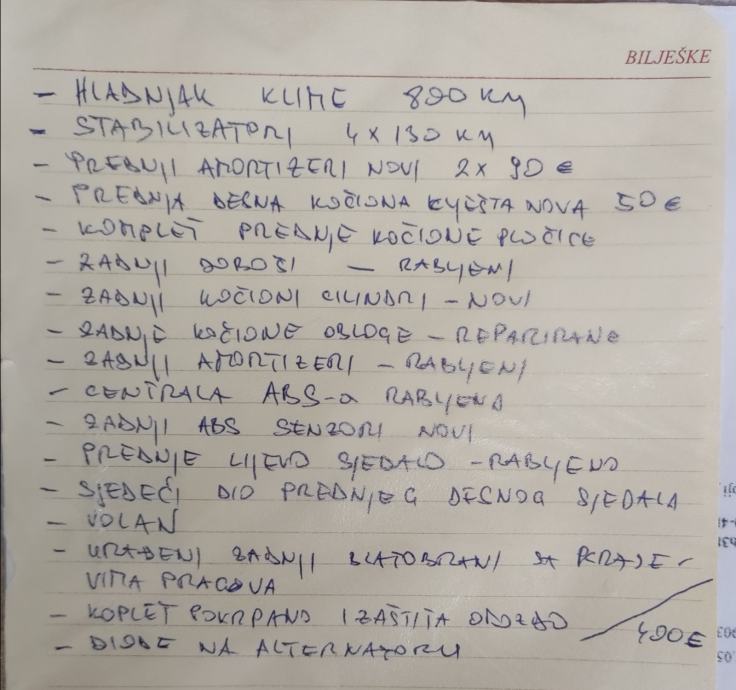 BILJEŠKE
- HLADNJAK KLIME 890 KM
- STABILIZATORI 4 x 130 KM
- PREDNJI AMORTIZERI NOVI 2x 90 €
- PREDNJA DESNA KOČIONA KLJEŠTA NOVA 50 €
- KOMPLET PREDNJE KOČIONE PLOČICE
- ZADNJI DOBOŠI - RABLJENI
- ZADNJI KOČIONI CILINDRI - NOVI
- ZADNJE KOČIONE OBLOGE - REPARIRANE
- ZADNJI AMORTIZERI - RABLJENI
- CENTRALA ABS-a RABLJENA
- ZADNJI ABS SENZORI NOVI
- PREDNJE LIJEVO SJEDALO - RABLJENO
- SJEDEĆI DIO PREDNJEG DESNOG SJEDALA
- VOLAN
- URAĐENI ZADNJI BLATOBRANI SA KRAJE-
VIMA PRAGOVA
- KOPLET POKRPANO I ZAŠTITA ODOZDO
490€
- DIODE NA ALTERNATORU